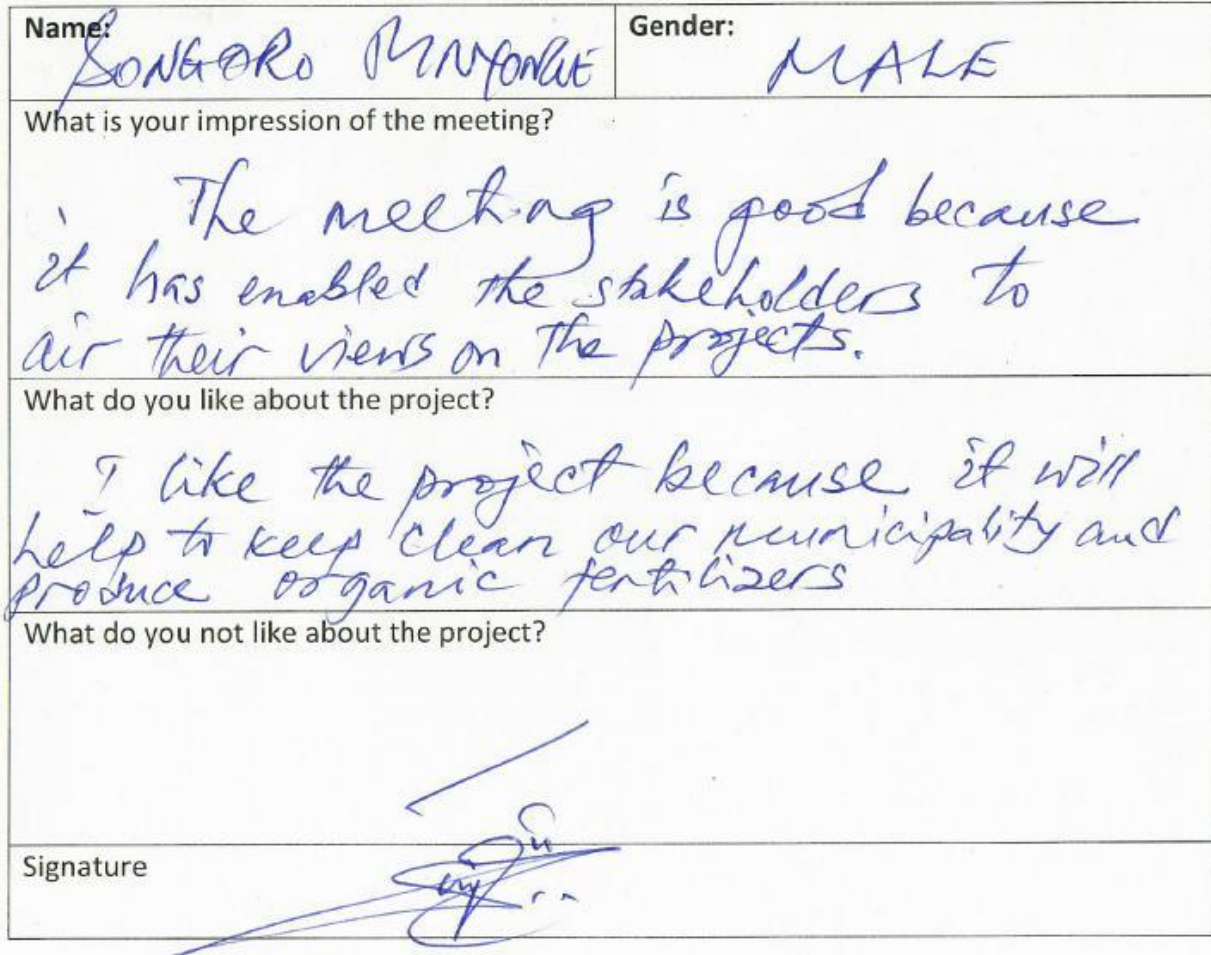 Name: SONGORO MNYONGE Gender: MALE
What is your impression of the meeting?
The meeting is good because
it has enabled the stakeholders to
air their views on the projects.
What do you like about the project?
I like the project because it will
help to keep clean our municipality and
produce organic fertilizers
What do you not like about the project?
Signature